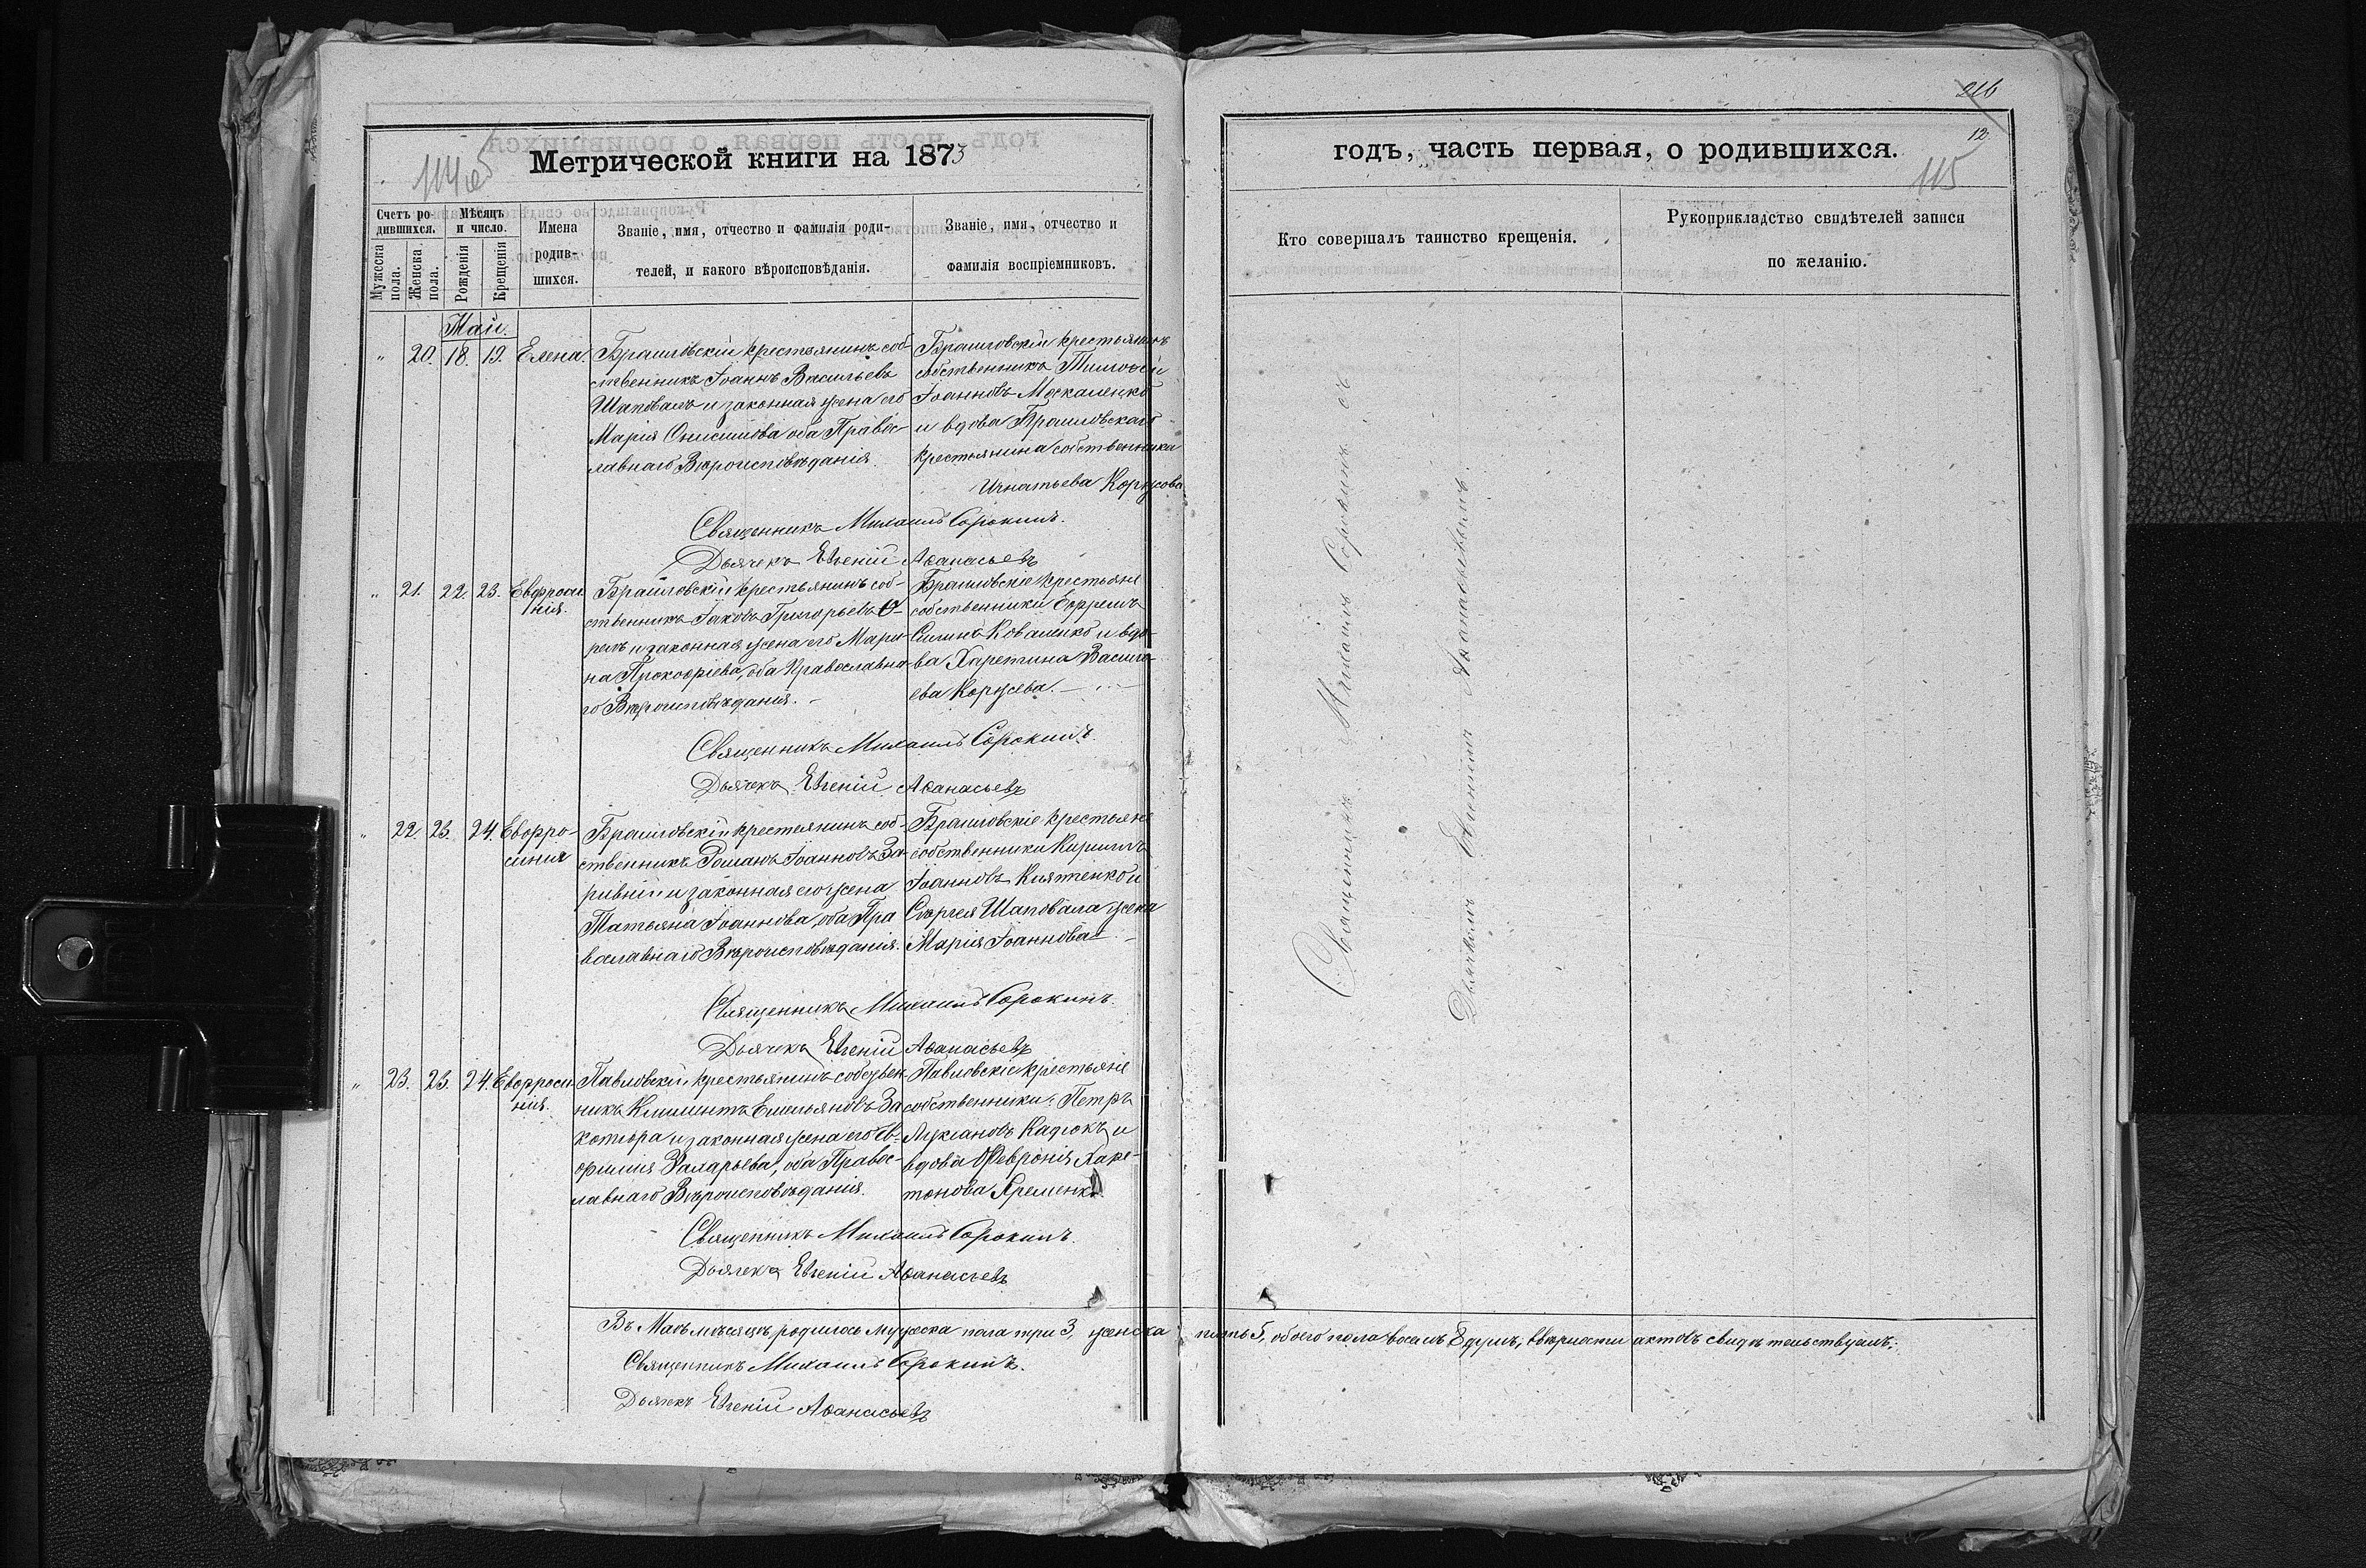 114 об
Метрической книги на 1873
Счетъ ро-
дившихся.
Мѣсяцъ
и число.
Мужеска
пола.
Женска
пола.
Рожденія
Крещенія
Имена
родив-
шихся.
Званіе, имя, отчество и фамилія роди-
телей, и какого вѣроисповѣданія.
Званіе, имя, отчество и
фамилія воспріемниковъ.
Май.
" 20. 18. 19. Елена.
Браиловскій крестьянинъ соб-
ственникъ Іоаннъ Васильевъ
Шаповалъ и законная жена его
Марія Онисимова оба Правос-
лавнаго Вѣроисповѣданія.
Браиловскій крестьянинъ
собственникъ Тимофей
Іоанновъ Москаленко
и вдова Браиловскаго
крестьянина собственника
Игнатьева Коржова
Священникъ Михаилъ Сорокинъ.
Дьячекъ Евгеній Аѳанасьевъ
" 21. 22. 23. Евфроси
нія.
Браиловскій крестьянинъ соб-
ственникъ Іаковъ Григорьевъ
и законная жена его Мари-
на Прокофіева, оба Православна-
го Вѣроисповѣданія. -
Браиловскіе крестьяне
собственники Ефремъ
Коваленко и вдо-
ва Харетина Василь-
ева Коржева. -
Священникъ Михаилъ Сорокинъ.
Дьячекъ Евгеній Аѳанасьевъ
" 22. 23. 24. Евфро-
синия
Браиловскій крестьянинъ соб-
ственникъ Романъ Іоанновъ За-
ривній и законная его жена
Татьяна Іоаннова, оба Пра
вославнаго Вѣроисповѣданія.
Браиловскіе крестьяне
собственники Кириллъ
Іоанновъ Книтенко и
Сергея Шаповала жена
Марія Іоаннова -
Священникъ Михаилъ Сорокинъ.
Дьячекъ Евгеній Аѳанасьевъ
" 23. 23. 24. Евфроси
нія.
Павловскій крестьянинъ собствен
никъ Климентъ Емельяновъ За
котюра и законная жена его Ев-
фимія Захарьева, оба Правос-
лавнаго Вѣроисповѣданія.
Павловскіе крестьяне
собственники: Петръ
Лукіановъ Кадюкъ и
вдова Февронія Хари-
тонова Яременко
Священникъ Михаилъ Сорокинъ.
Дьячекъ Евгеній Аѳанасьевъ
Въ Маѣ мѣсяцѣ родилось мужеска пола три 3, женска пять 5, обоего пола восемь 8 душъ, въ вѣрности актовъ свидѣтельствуемъ:
Священникъ Михаилъ Сорокинъ.
Дьячекъ Евгеній Аѳанасьевъ
216
12
115
годъ, часть первая, о родившихся.
Кто совершалъ таинство крещенія.
Рукоприкладство свидѣтелей записи
по желанію.
Священникъ Михаилъ Сорокинъ съ
Дьячкомъ Евгеніемъ Аѳанасьевымъ.